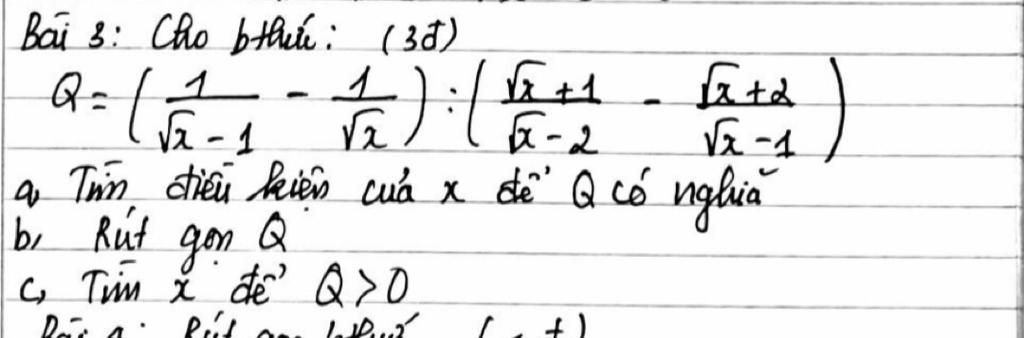 Bài 3: Cho bthức: (3đ)
Q = ( 1/(√x - 1) - 1/√x ) : ( (√x + 1)/(√x - 2) - (√x + 2)/(√x - 1) )
a, Tìm điều kiện của x để Q có nghĩa
b, Rút gọn Q
c, Tìm x để Q > 0